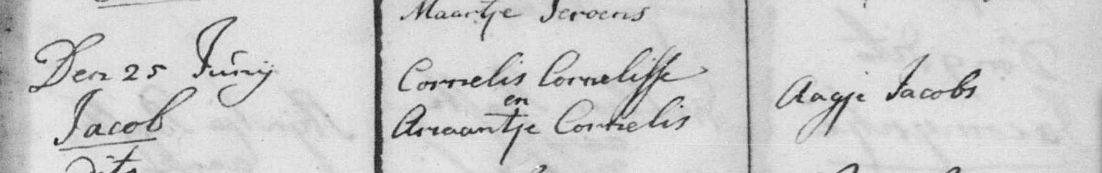 Maartje Jeroens
Den 25 Junij
Jacob
Cornelis Cornelisse
en
Ariaantje Cornelis
Aagje Jacobs
dito